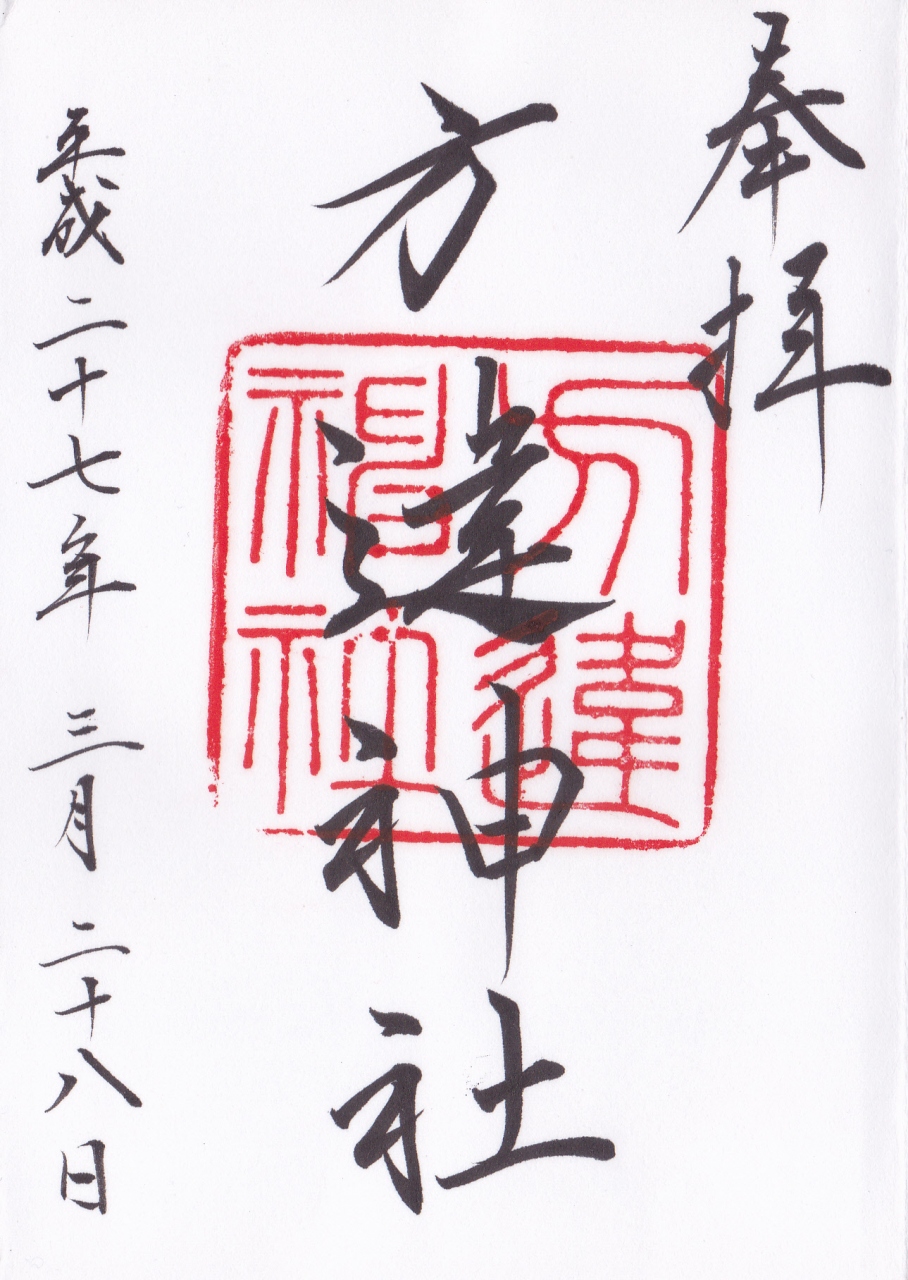 奉拝
方違神社
方違神社
平成二十七年 三月 二十八日